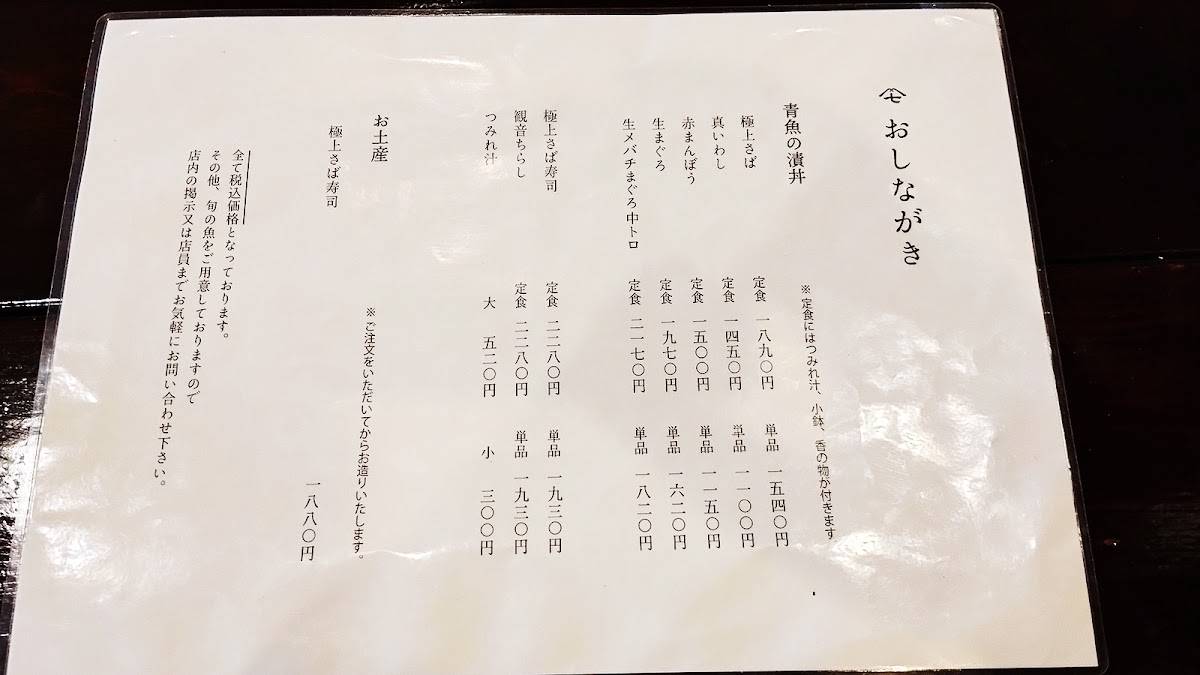 おしながき
青魚の漬丼
※定食にはつみれ汁、小鉢、香の物が付きます
極上さば 定食 一八九〇円 単品 一五四〇円
真いわし 定食 一四五〇円 単品 一一〇〇円
赤まんぼう 定食 一五〇〇円 単品 一一五〇円
生まぐろ 定食 一九七〇円 単品 一六二〇円
生メバチまぐろ中トロ 定食 二一七〇円 単品 一八二〇円
極上さば寿司 定食 二二八〇円 単品 一九三〇円
観音ちらし 定食 二二八〇円 単品 一九三〇円
つみれ汁 大 五二〇円 小 三〇〇円
お土産
※ご注文をいただいてからお造りいたします。
極上さば寿司 一八八〇円
全て税込価格となっております。
その他、旬の魚をご用意しておりますので
店内の掲示又は店員までお気軽にお問い合わせ下さい。